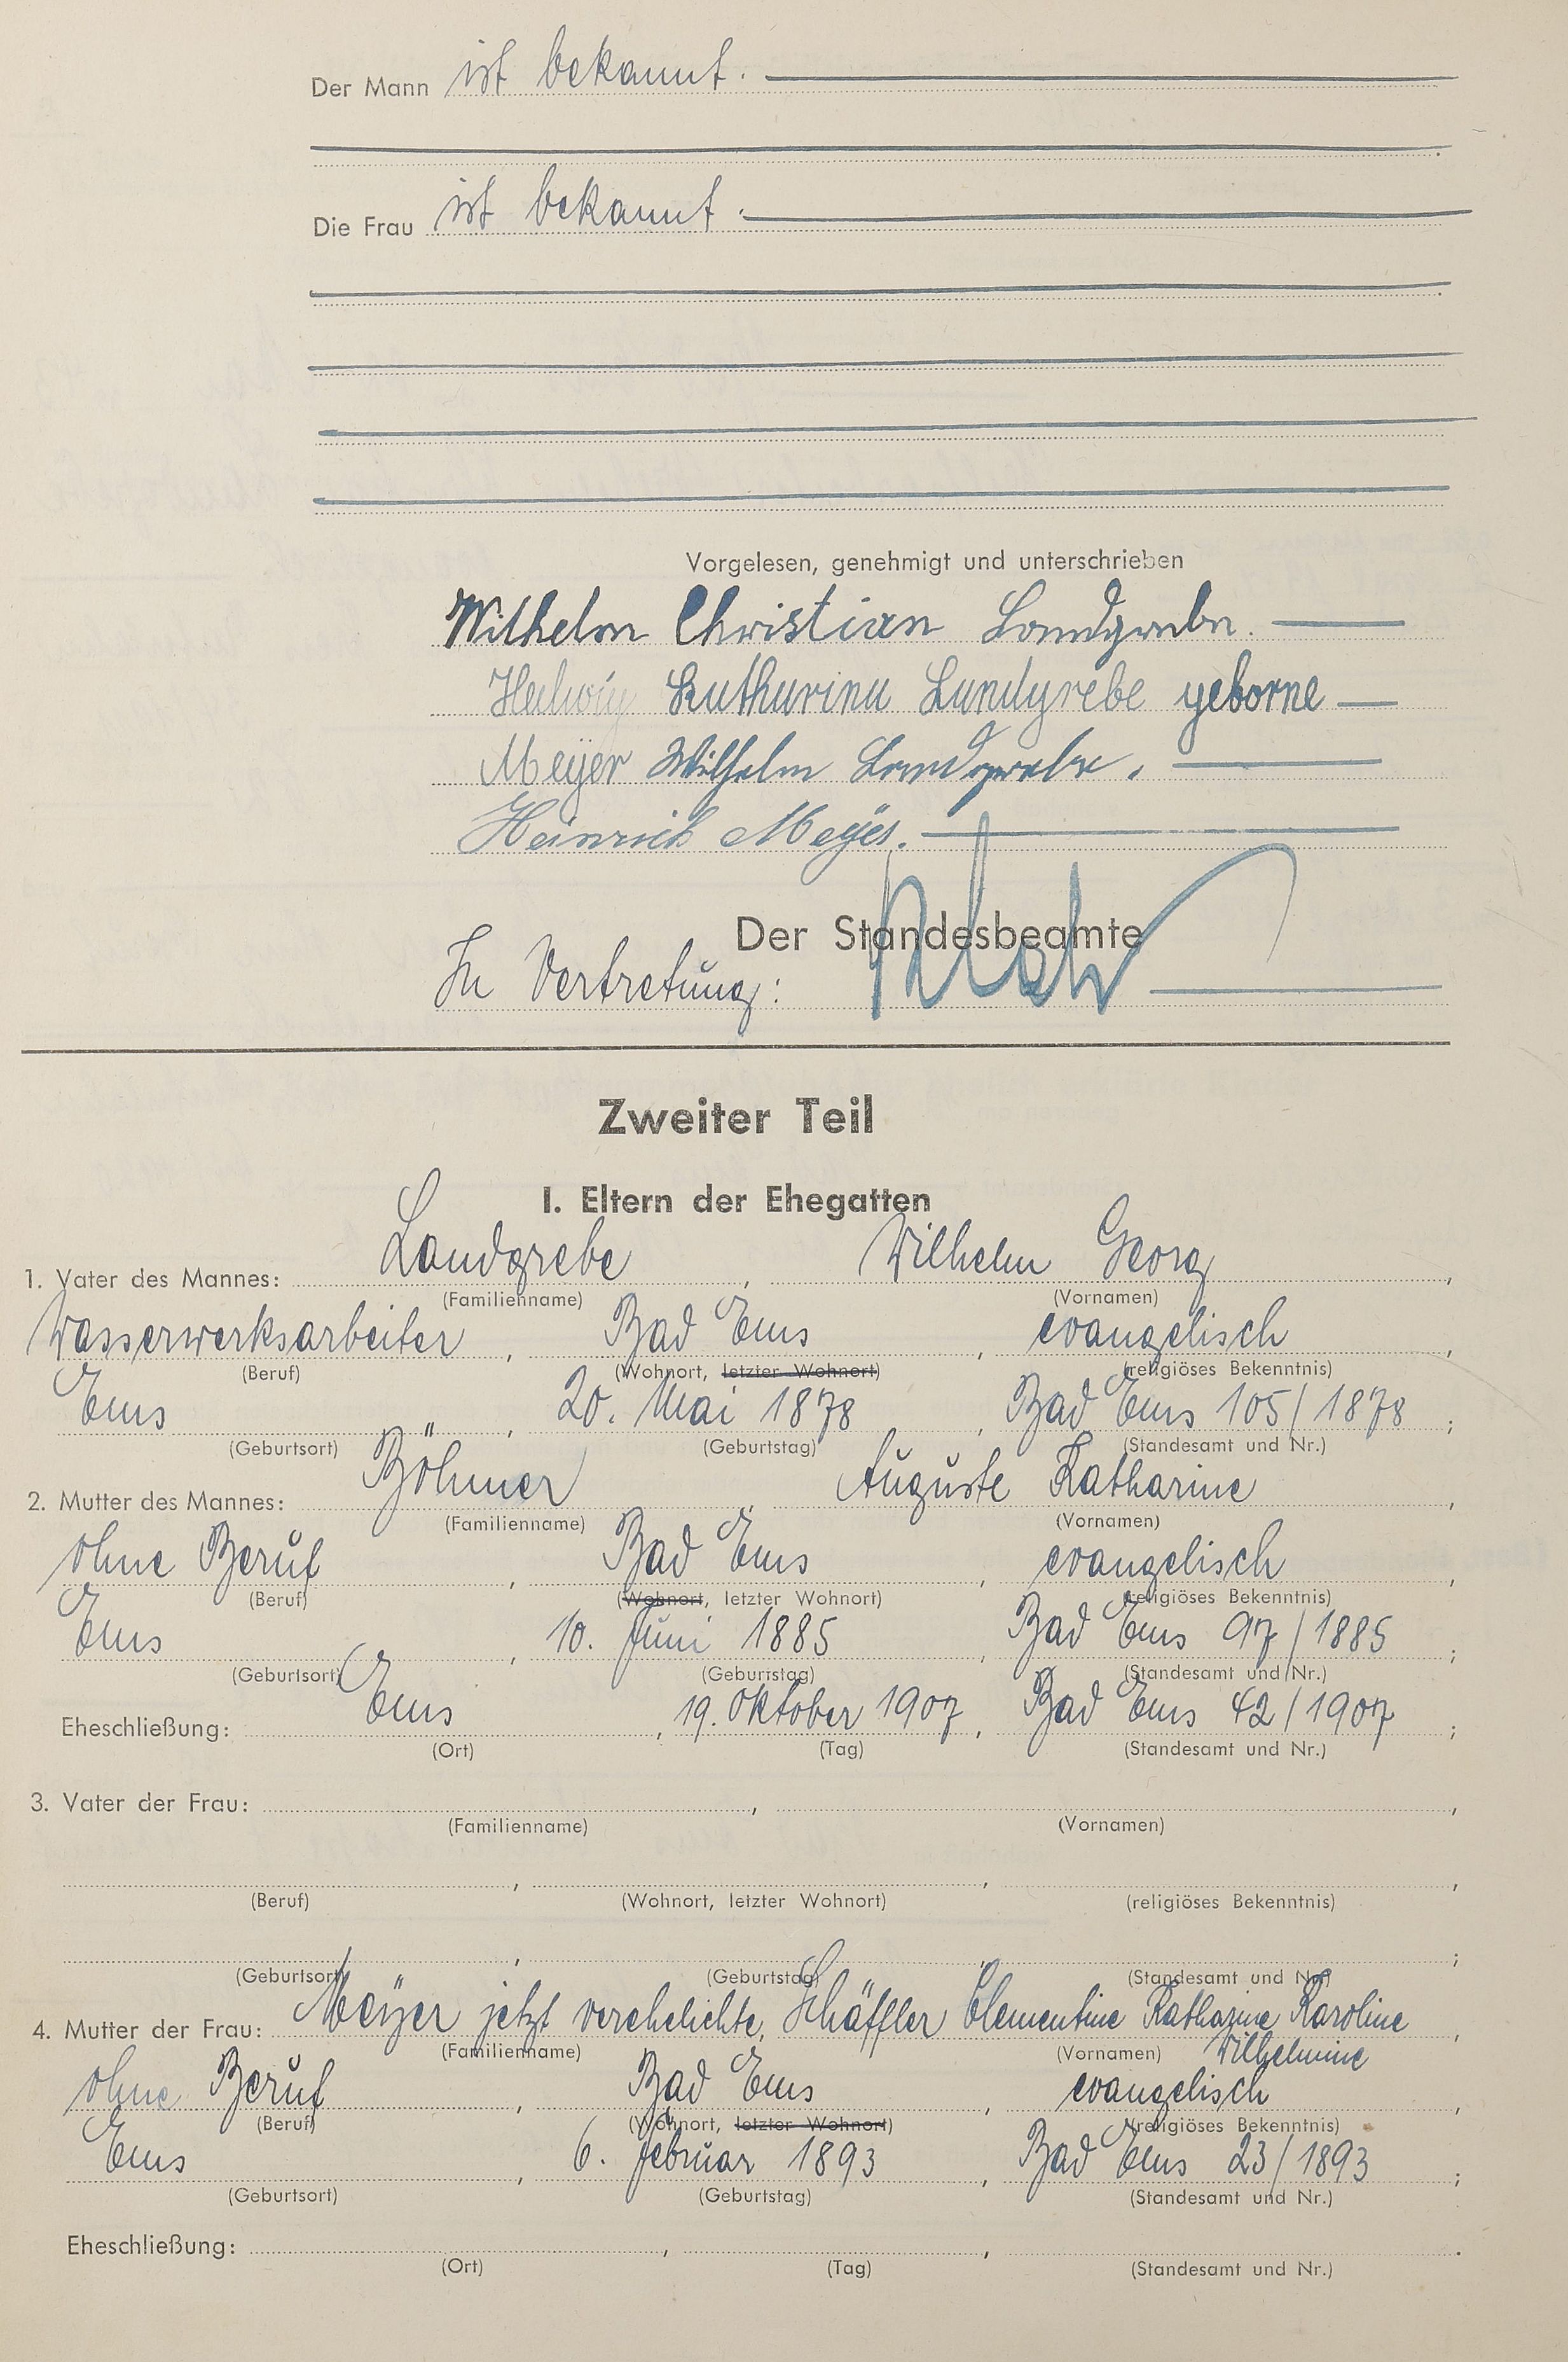 Der Mann ist bekannt.
Die Frau ist bekannt.
Vorgelesen, genehmigt und unterschrieben
Wilhelm Christian Landgrebe.
Hedwig Katharina Landgrebe geborne
Meyer Wilhelm Landgrebe.
Heinrich Meyer.
Der Standesbeamte
In Vertretung:
Zweiter Teil
I. Eltern der Ehegatten
1. Vater des Mannes: Landgrebe, Wilhelm Georg,
(Familienname) (Vornamen)
Wasserwerksarbeiter, Bad Ems, evangelisch,
(Beruf) (Wohnort, letzter Wohnort) (religiöses Bekenntnis)
Ems, 20. Mai 1878, Bad Ems 105/1878;
(Geburtsort) (Geburtstag) (Standesamt und Nr.)
2. Mutter des Mannes: Böhmer, Auguste Katharine,
(Familienname) (Vornamen)
ohne Beruf, Bad Ems, evangelisch,
(Beruf) (Wohnort, letzter Wohnort) (religiöses Bekenntnis)
Ems, 10. Juni 1885, Bad Ems 97/1885;
(Geburtsort) (Geburtstag) (Standesamt und Nr.)
Eheschließung: Ems, 19. Oktober 1907, Bad Ems 42/1907;
(Ort) (Tag) (Standesamt und Nr.)
3. Vater der Frau: , ,
(Familienname) (Vornamen)
, , ,
(Beruf) (Wohnort, letzter Wohnort) (religiöses Bekenntnis)
, , ;
(Geburtsort) (Geburtstag) (Standesamt und Nr.)
4. Mutter der Frau: Meyer jetzt verehelichte, Schäffler Clementine Katharine Karoline,
(Familienname) (Vornamen) Wilhelmine
ohne Beruf, Bad Ems, evangelisch,
(Beruf) (Wohnort, letzter Wohnort) (religiöses Bekenntnis)
Ems, 6. Februar 1893, Bad Ems 23/1893;
(Geburtsort) (Geburtstag) (Standesamt und Nr.)
Eheschließung: , , .
(Ort) (Tag) (Standesamt und Nr.)